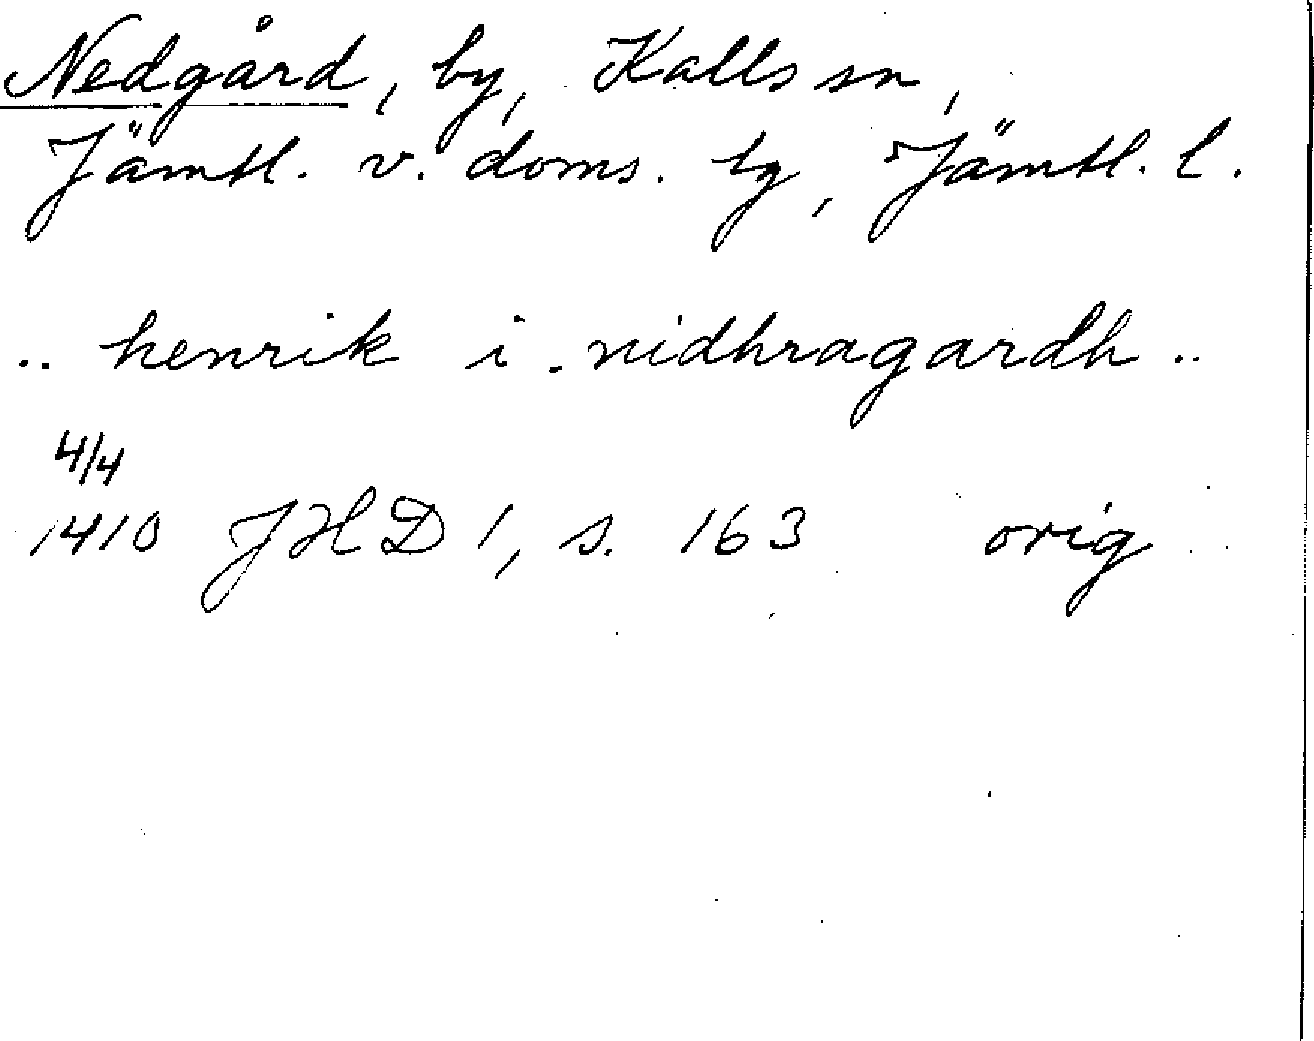 Nedgård, by, Kalls sn,
Jämtl. v. doms. tg, Jämtl. l.
.. henrik i . nidhragardh ..
4/4
1410 JHD 1, s. 163 orig